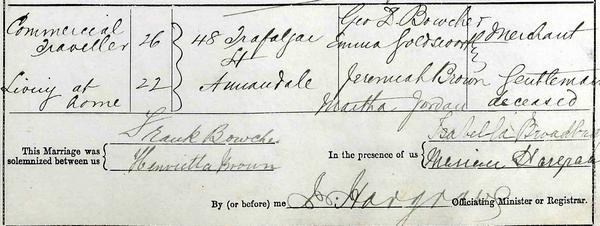 Commercial Traveller 26 48 Trafalgar St Annandale Geo D. Bowcher Emma Goldsworthy Merchant
Living at home 22 Jeremiah Brown Martha Jordan Gentleman deceased
This Marriage was solemnized between us Frank Bowcher Henrietta Brown
In the presence of us Isabella Broadbug Hargrave
By (or before) me J. Hargrave Officiating Minister or Registrar.